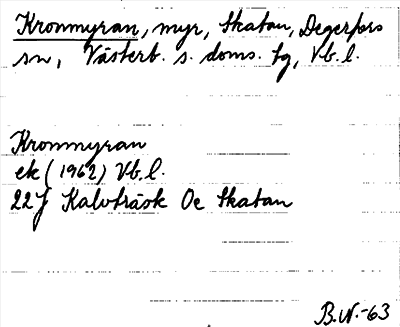 Kronmyran, myr, Skatan, Degerfors
sn, Västerb. s. doms. tg, Vb. l.
Kronmyran
ek (1962) Vb. l.
22J Kalvträsk Oc Skatan
B.N.-63